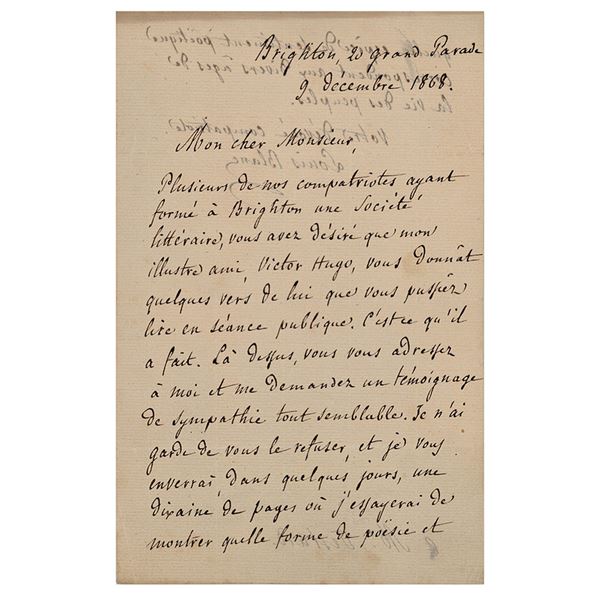 Brighton, 20 grand Parade
9 decembre 1868.
Mon cher Monsieur,
Plusieurs de nos compatriotes ayant
formé à Brighton une Société
littéraire, vous avez désiré que mon
illustre ami, Victor Hugo, vous donnât
quelques vers de lui que vous pussiez
lire en séance publique. C'est ce qu'il
a fait. Là dessus, vous vous adressez
à moi et me demandez un témoignage
de sympathie tout semblable. Je n'ai
garde de vous le refuser, et je vous
enverrai, dans quelques jours, une
dixaine de pages où j'essayerai de
montrer quelle forme de poësie et